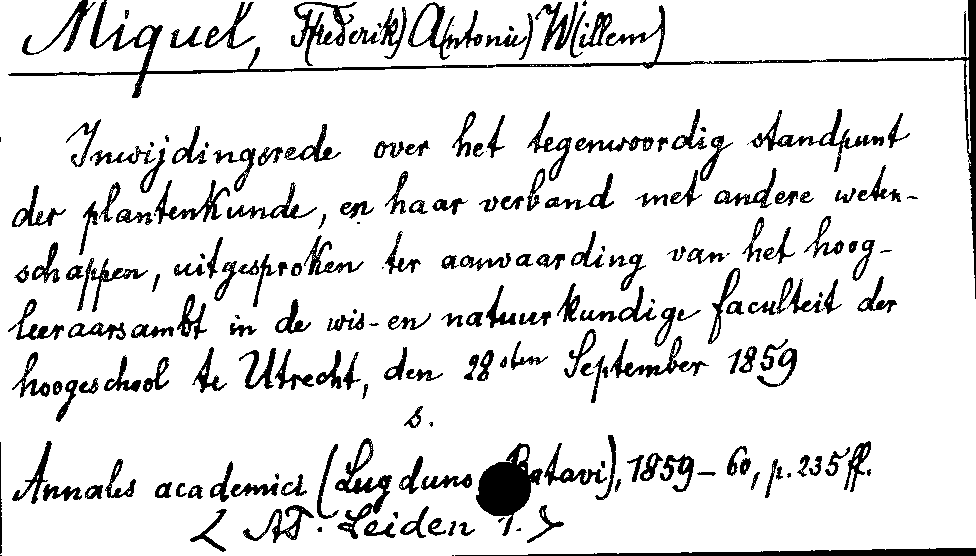 Miquel, F(rederik) A(ntonie) W(illem)
Inwijdingsrede over het tegenwoordig standpunt
der plantenkunde, en haar verband met andere weten-
schappen, uitgesproken ter aanvaarding van het hoog-
leeraarsambt in de wis- en natuurkundige faculteit der
hoogeschool te Utrecht, den 28sten September 1859
s.
Annales academici (Lugduno Batavi), 1859-60, p. 235 ff.
< AT. Leiden 1. >